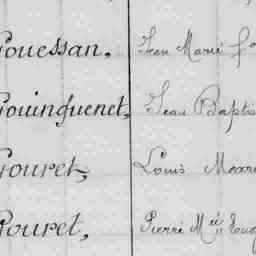 Gouessan, Jean Marie f
Gouinguenet, Jean Baptis
Gouret, Louis Marie
Gouret, Pierre M